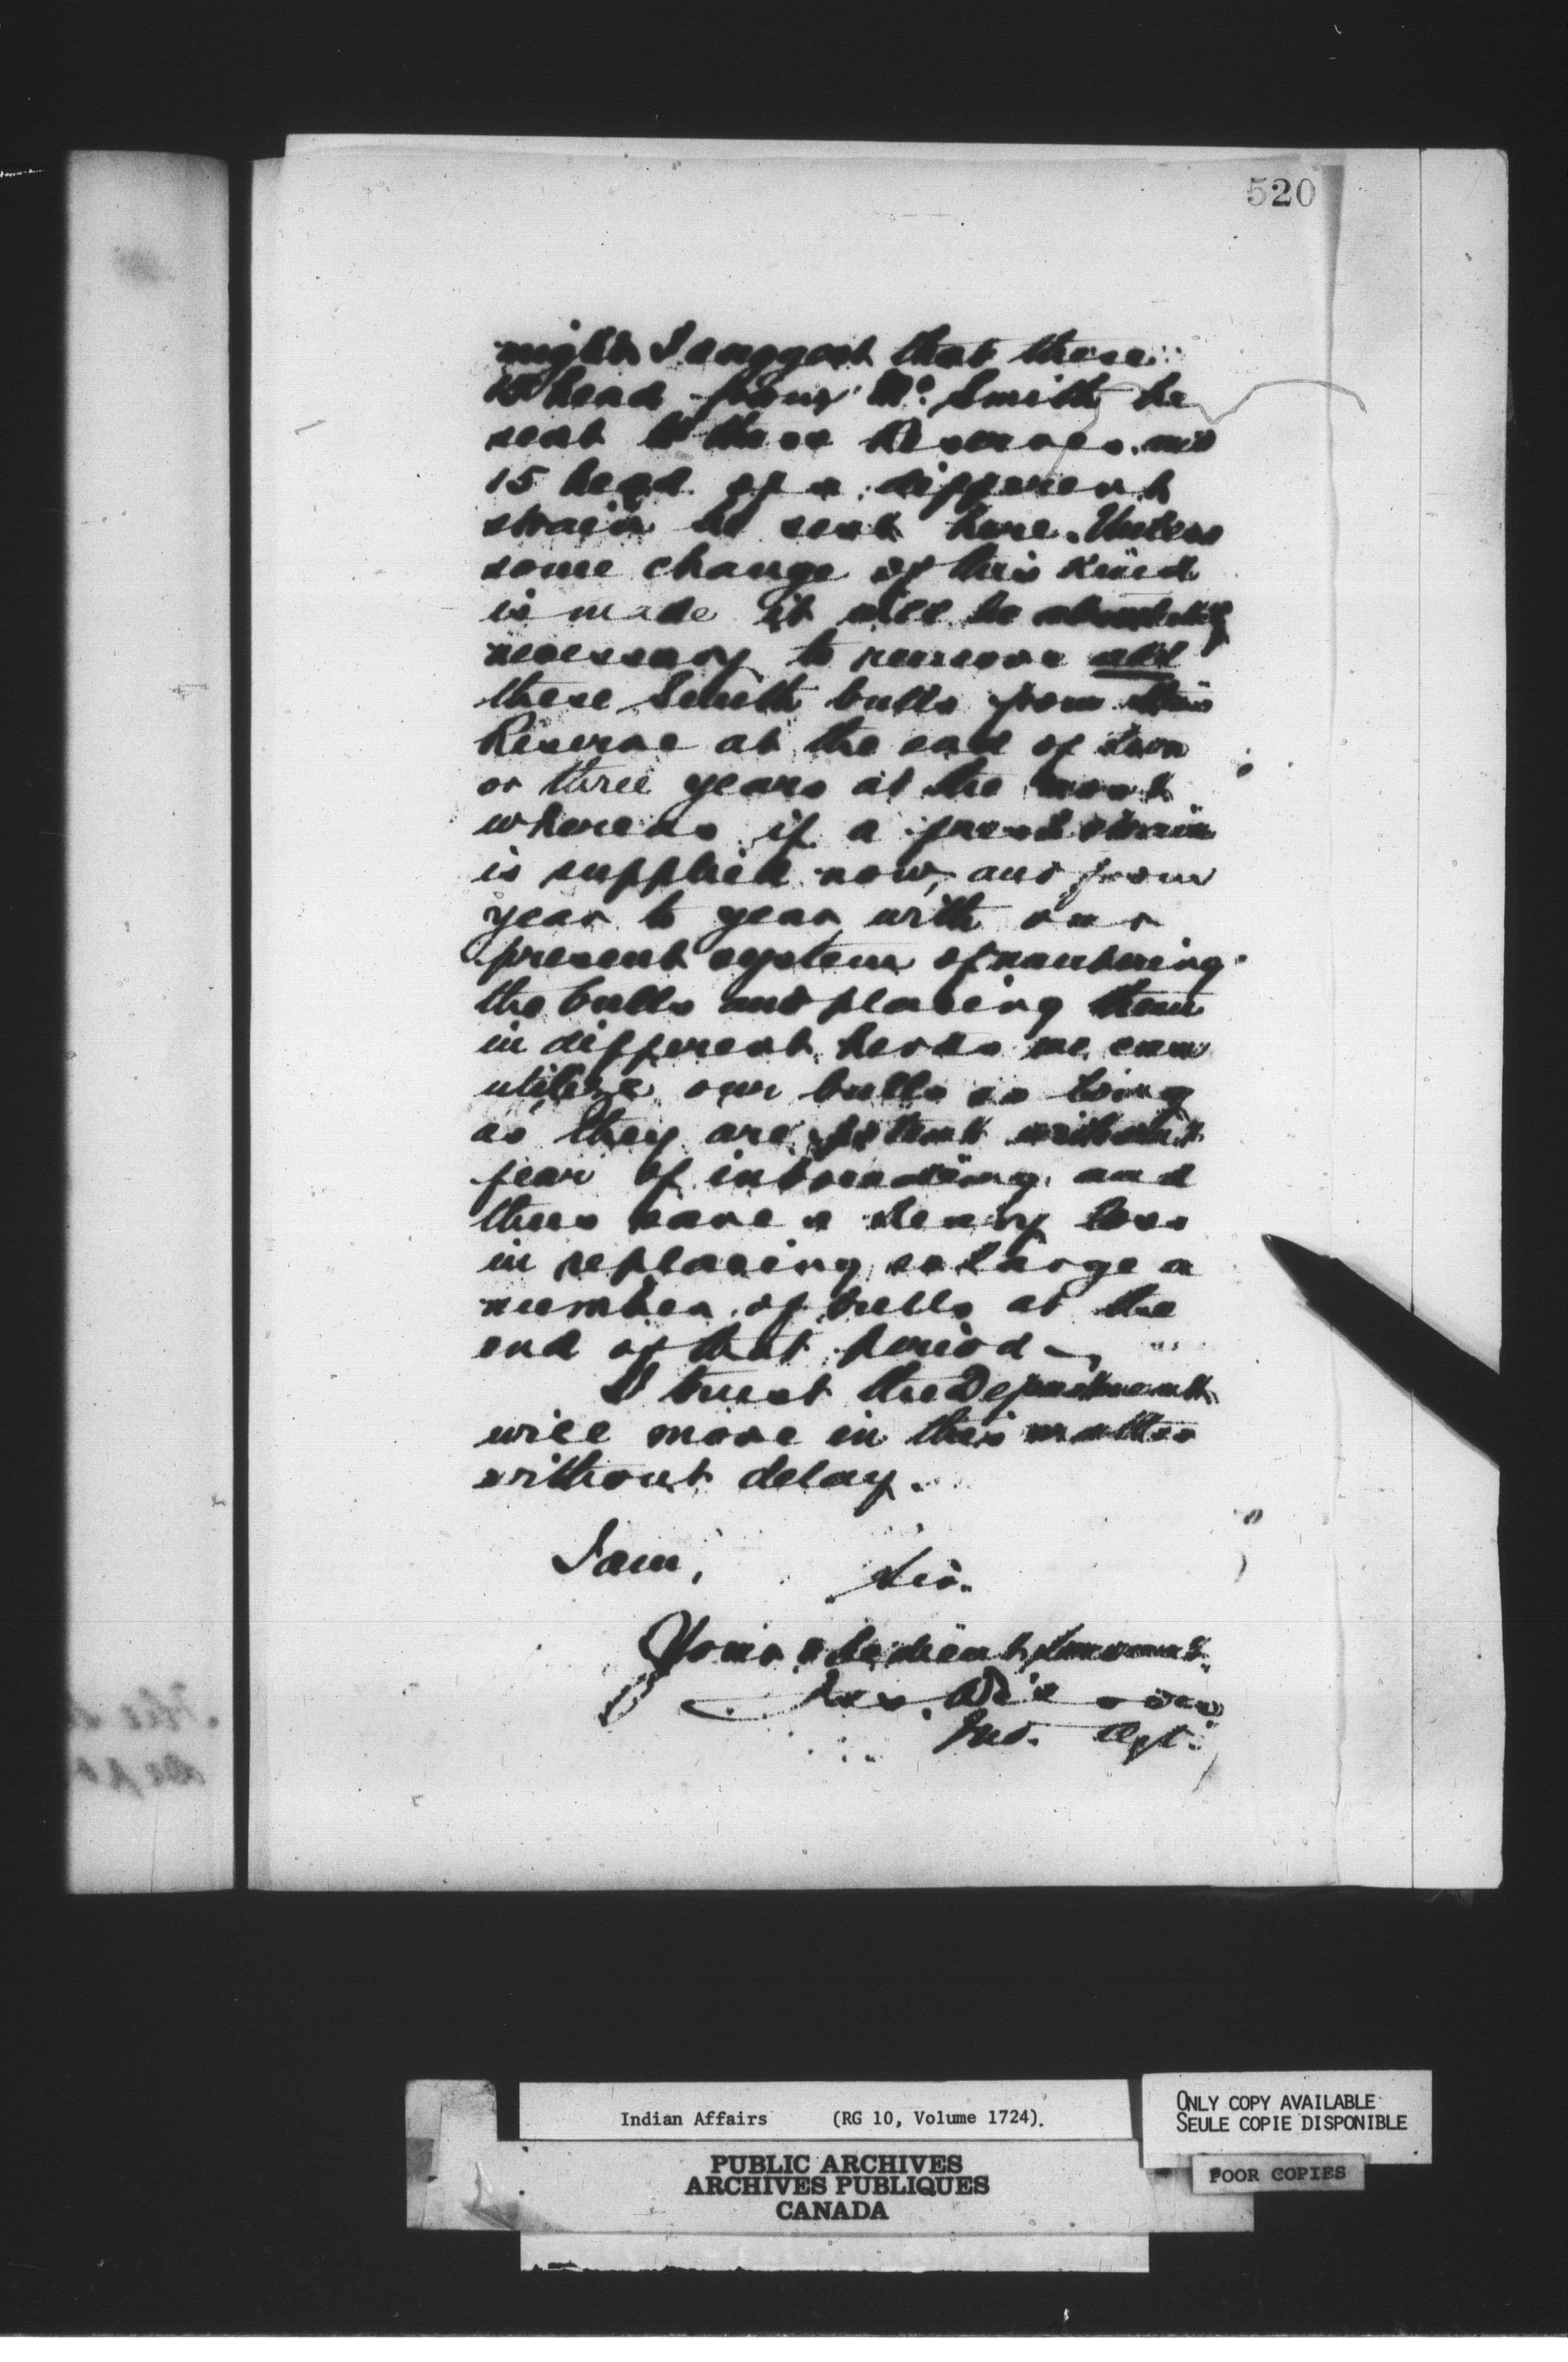 520
might I suggest that these
15 head from Mr. Smith be
sent to these Reserves and
15 head of a different
strain be sent here. Unless
some change of this kind
is made it will be absolutely
necessary to remove all
these Smith bulls from this
Reserve at the end of two
or three years at the most
whereas if a fresh strain
is supplied now, and from
year to year with our
present system of numbering
the bulls and placing them
in different herds we can
utilize our bulls as long
as they are potent without
fear of inbreeding and
thus save a heavy loss
in replacing so large a
number of bulls at the
end of that period
I trust the Department
will move in this matter
without delay.
I am,
Sir.
Your obedient Servant.
Jas. Wilson
Ind. Agt.
Indian Affairs (RG 10, Volume 1724).
PUBLIC ARCHIVES
ARCHIVES PUBLIQUES
CANADA
ONLY COPY AVAILABLE
SEULE COPIE DISPONIBLE
POOR COPIES